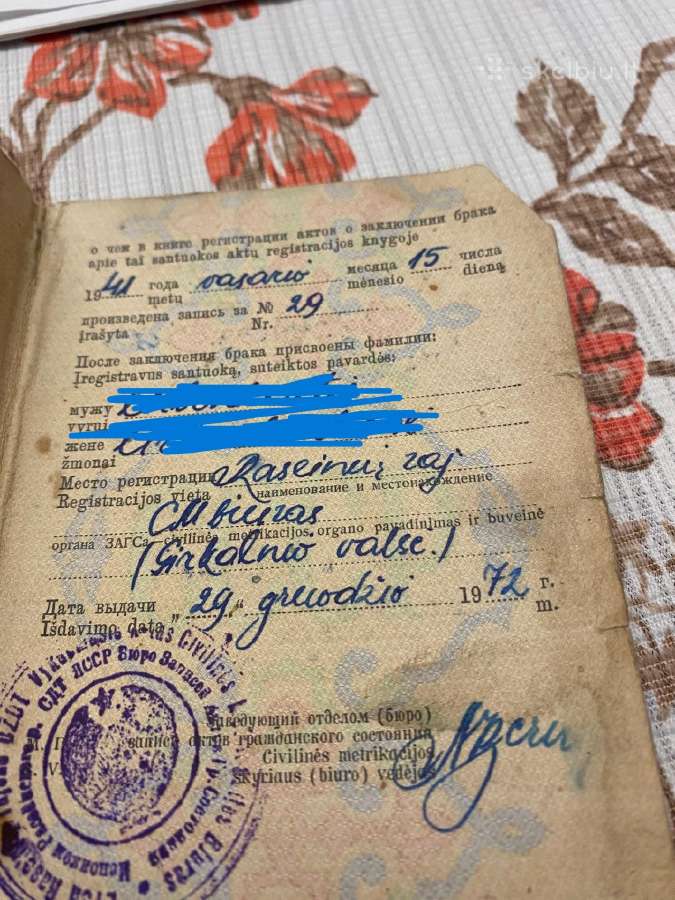 skelbiu.lt
о чем в книге регистрации актов о заключении брака
apie tai santuokos aktų registracijos knygoje
1941 года vasario месяца 15 числа
metų mėnesio dieną
произведена запись за № 29
įrašyta Nr.
После заключения брака присвоены фамилии:
Įregistravus santuoką, suteiktos pavardės:
мужу
vyrui
жене
žmonai
Место регистрации Raseinių raj
Registracijos vieta наименование и местонахождение
CM biuras
органа ЗАГСа civilinės metrikacijos organo pavadinimas ir buveinė
(Girkalnio valsč.)
Дата выдачи „29“ gruodžio 1972 г.
Išdavimo data m.
Заведующий отделом (бюро)
М. П. записи актов гражданского состояния
V. Civilinės metrikacijos
skyriaus (biuro) vedėjas